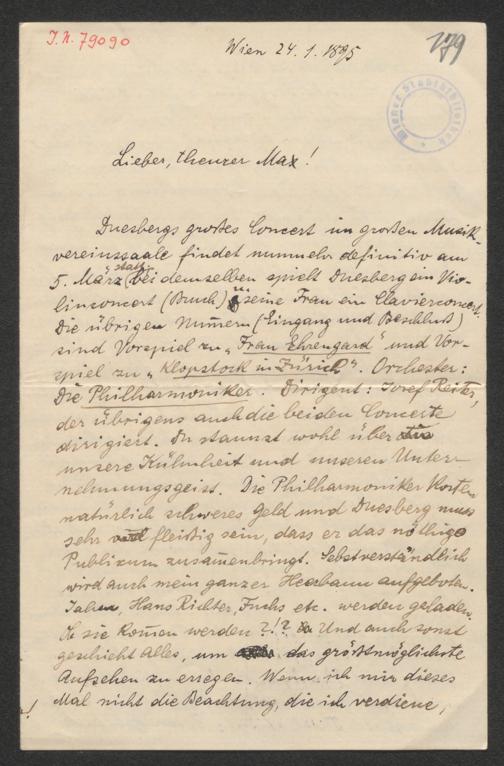 I.N. 79090
179
Wien 24. 1. 1895
Wiener Stadtbibliothek
Lieber, theurer Max!
Duesbergs großes Concert im großen Musik-
vereinssaale findet nunmehr definitiv am
5. März statt, bei demselben spielt Duesberg ein Vio-
linconcert (Bruch) u. seine Frau ein Clavierconcert.
Die übrigen Numern (Eingang und Beschluß)
sind Vorspiel zu „Frau Ehrengard" und Vor-
spiel zu „Klopstock in Zürich". Orchester:
Die Philharmoniker. Dirigent: Josef Reiter,
der übrigens auch die beiden Concerte
dirigiert. Du staunst wohl über
unsere Kühnheit und unseren Unter-
nehmungsgeist. Die Philharmoniker kosten
natürlich schweres Geld und Duesberg muss
sehr fleißig sein, dass er das nöthige
Publikum zusamenbringt. Selbstverständlich
wird auch mein ganzer Heerbann aufgeboten.
Jahn, Hans Richter, Fuchs etc. werden geladen.
Ob sie komen werden ?!? Und auch sonst
geschieht Alles, um das größtmöglichste
Aufsehen zu erregen. Wenn ich mir dieses
Mal nicht die Beachtung, die ich verdiene,